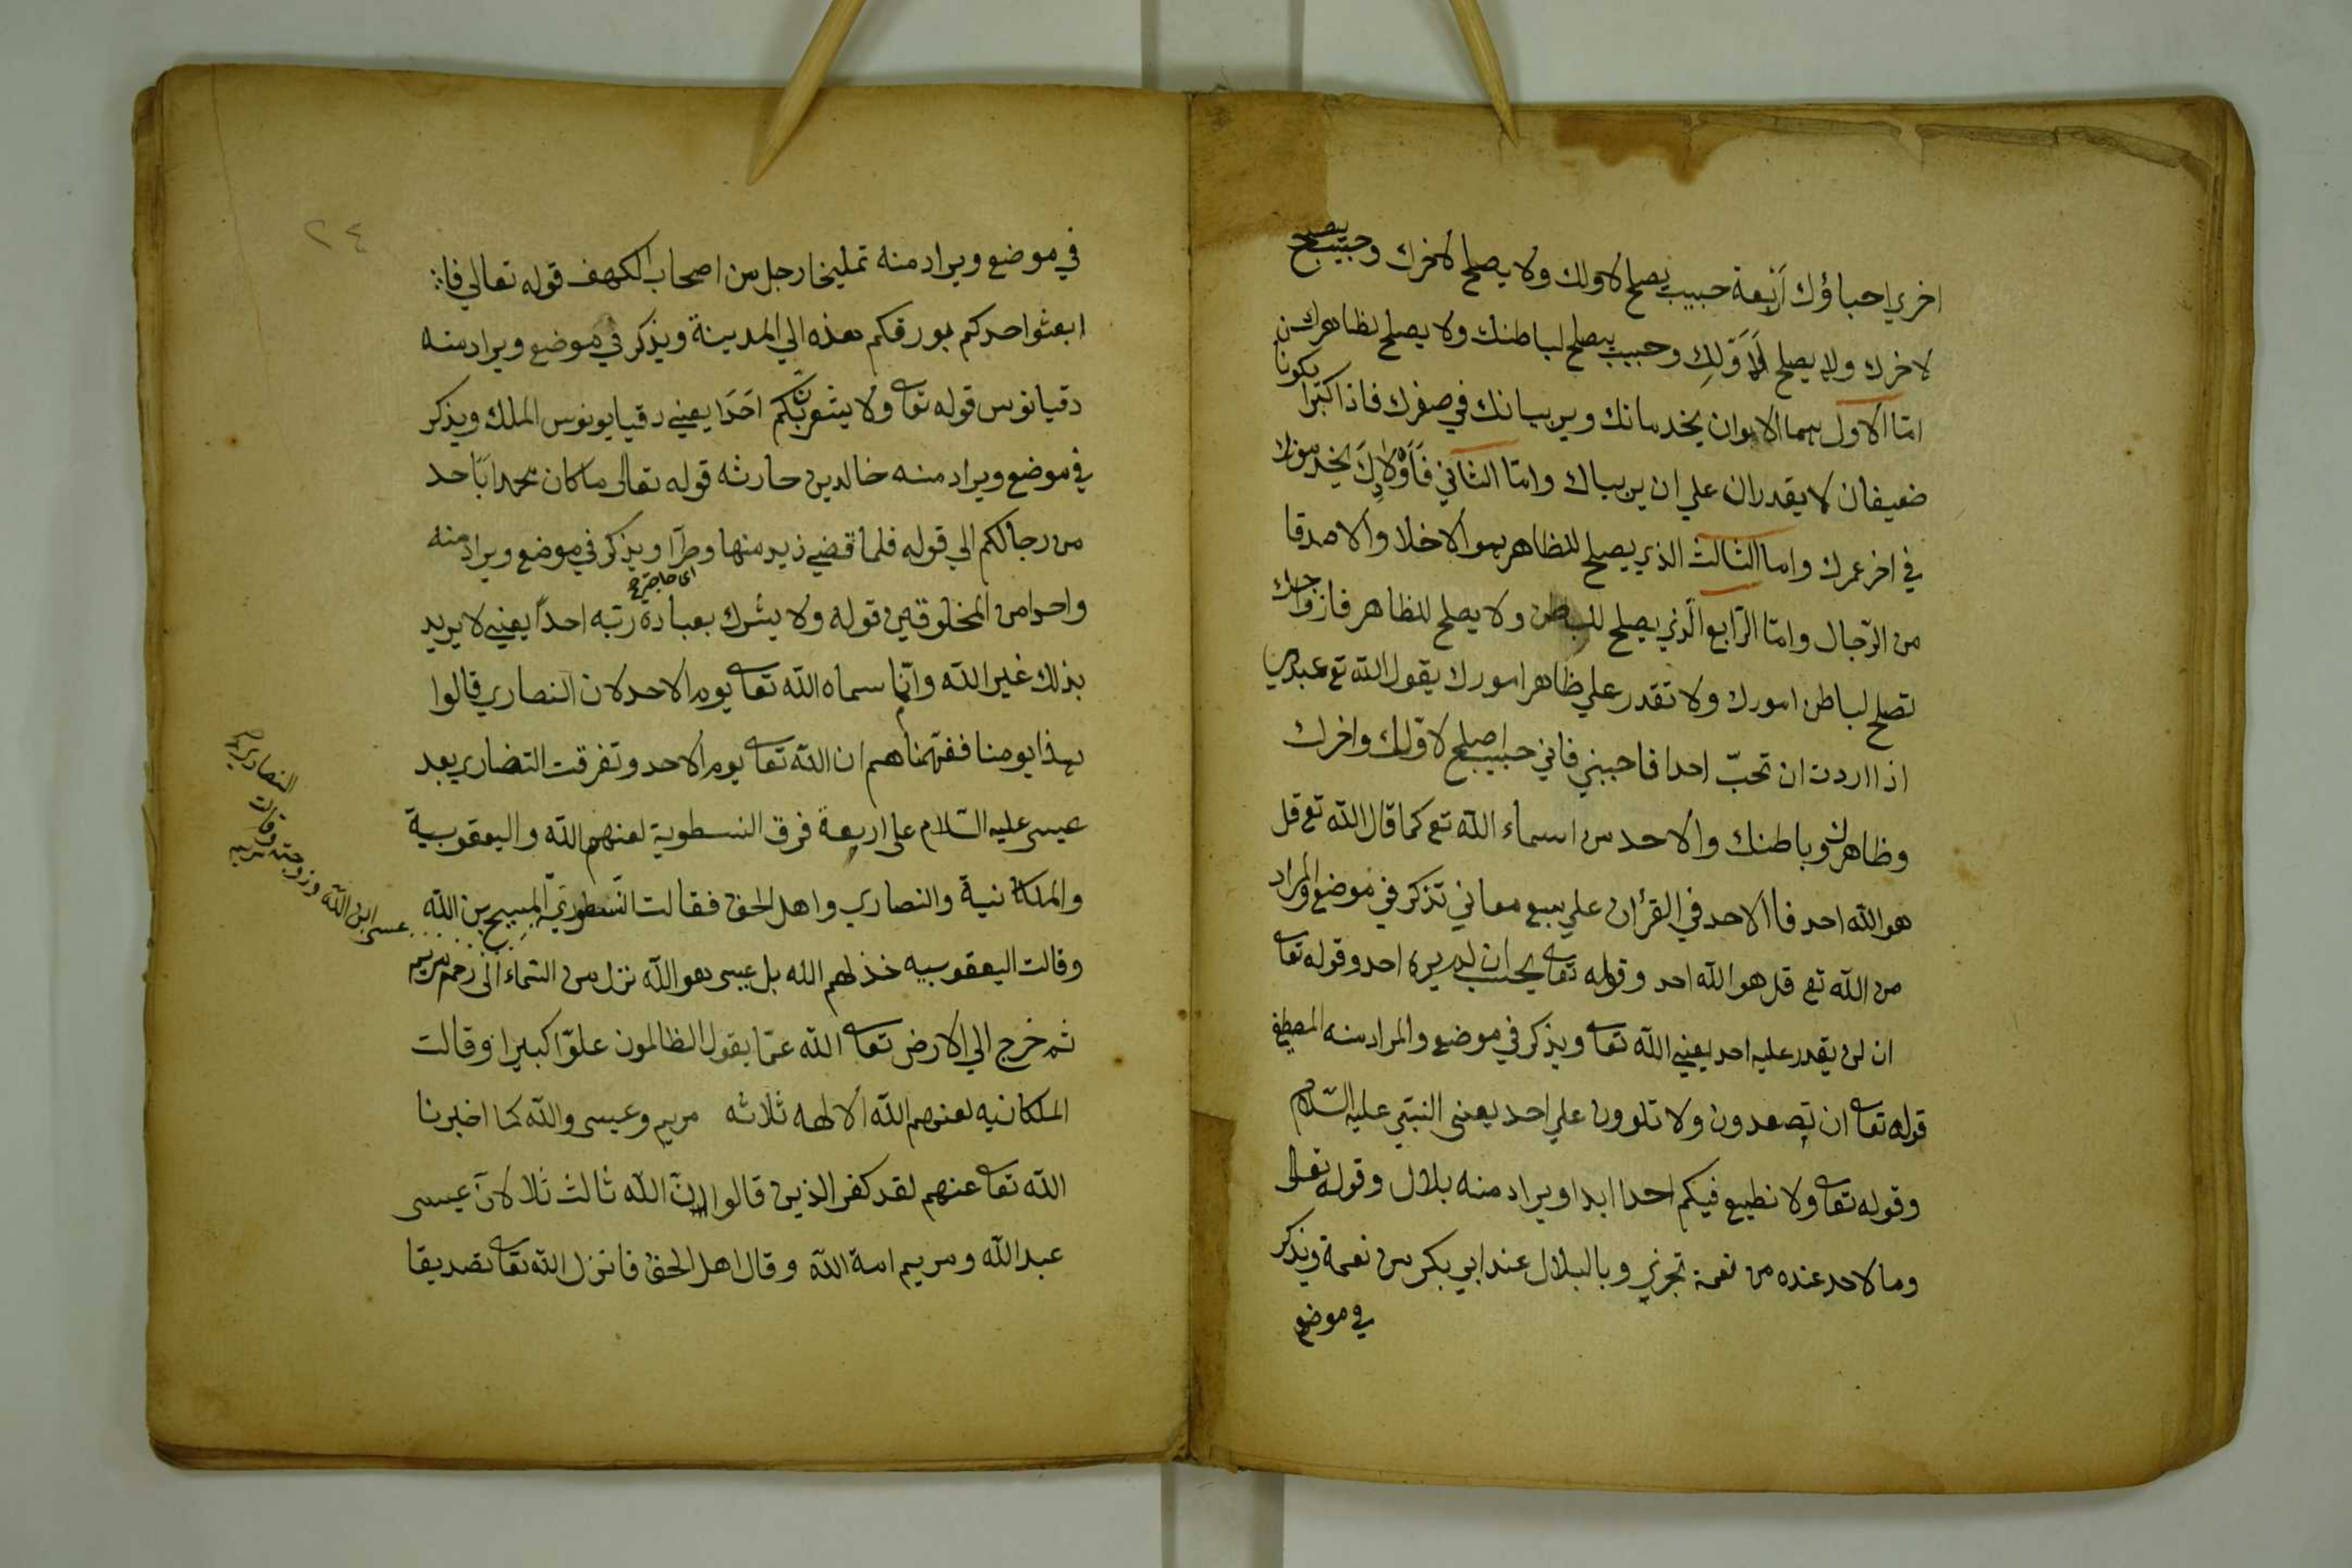 اخري احباؤك اربعة حبيب يصلح لاولك ولا يصلح لاخرك وحبيب يصلح
لاخرك ولا يصلح لاَوّلِك وحبيب يصلح لباطنك ولا يصلح لظاهرك
امّا الاول هما الابوان يخدمانك ويربيانك في صغرك فاذا كبرا يكونا
ضعيفان لا يقدران علي ان يربياك وامّا الثاني فَاَوْلادِكَ يخدمونك
في اخر عمرك واما الثالث الذي يصلح للظاهر هو الاخلا والاصدقا
من الرّجال وامّا الرّابع الّذي يصلح للباطن ولا يصلح للظاهر فازواجك
تصلح لباطن امورك ولا تقدر علي ظاهر امورك يقول الله تع عبدي
اذا اردت ان تحبّ احدا فاحببني فاني حبيب اصلح لاوّلك واخرك
وظاهرك وباطنك والاحد من اسماء الله تع كما قال الله تع قل
هو الله احد فاالاحد في القرأن علي سبع معاني تذكر في موضع والمراد
من الله تع قل هو الله احد وقوله تعا يحسب ان لم يره احد وقوله تعا
ان لن يقدر عليه احد يعني الله تعا ويذكر في موضع والمراد منه المصطفي
قوله تعا ان تصعدون ولا تلوون علي احد يعني النبّي عليه السّلام
وقوله تعا ولا نطيع فيكم احدا ابدا ويراد منه بلال وقوله تعالى
وما لاحد عنده من نعمة تجزي وبالبلال عند ابي بكر من نعمة ويذكر
في موضع
٢٤
في موضع ويراد منه تمليخا رجل من اصحاب الكهف قوله تعالي فا
ابعثوا احدكم بورقكم هذه الي المدينة ويذكر في موضع ويراد منه
دقيانوس قوله تعا ولا يشعرنّ بكم احَدَا يعني دقيايونوس الملك ويذكر
في موضع ويراد منه خالد بن حارثه قوله تعالى ما كان محمد ابا احد
من رجالكم الي قوله فلما قضي زيد منها وطرًا ويذكر في موضع ويراد منه
واحدا من المخلوقين قوله ولا يشرك بعبادة ربّه احداً يعني لا يريد
بذلك غير الله وانّما سماه الله تعا يوم الاحد لان النصاري قالوا
هذا يومنا ففهّمناهم ان الله تعا يوم الاحد وتفرقت النصاري بعد
عيسى عليه السّلام على اربعة فرق النسطوية لعنهم الله واليعقوبية
والملكانية والنصاري واهل الحق فقالت النّسطوريّ المسِيح بن الله
وقالت اليعقوبيه خذلهم الله بل عيسى هو الله نزل من السّماء الى رحم مريم
ثم خرج الي الارض تعا الله عمّا يقول الظالمون علوّا كبيرا وقالت
الملكانيه لعنهم الله ألالهه ثلاثه مريم وعيسى والله كما اخبرنا
الله تعا عنهم لقد كفر الذين قالوا انّ الله ثالث ثلا لانّ عيسى
عبد الله ومريم امة الله وقال اهل الحق فانزل الله تعا تصديقا
النصاري
وقالت
عسى ابن الله وزوجته مريم